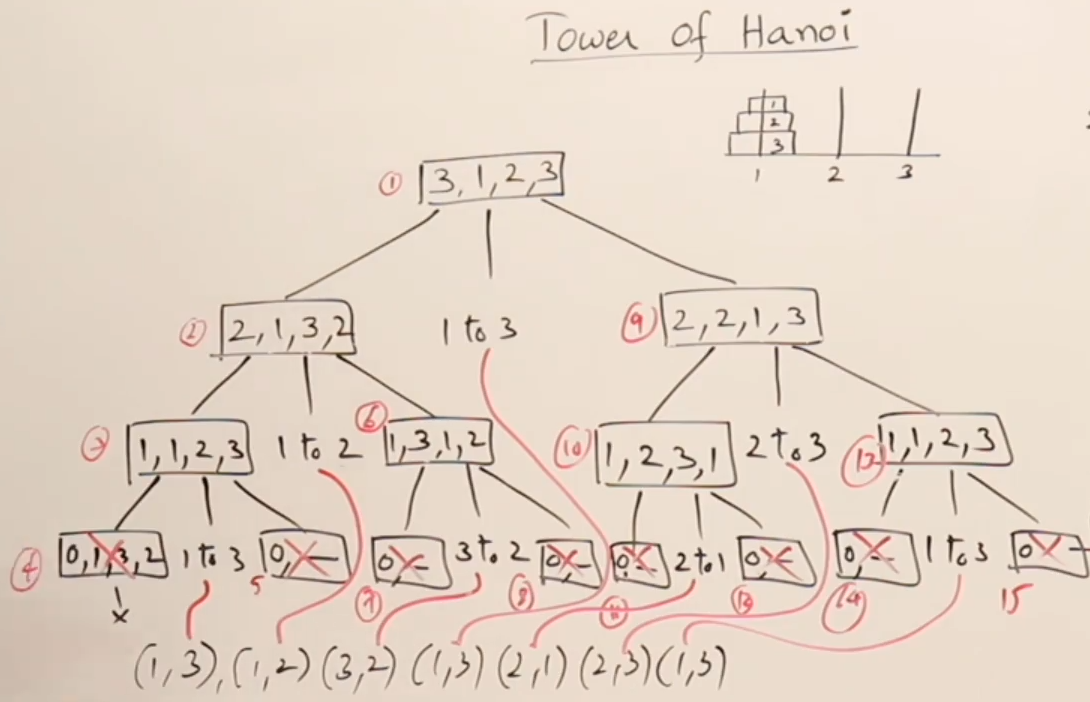 Tower of Hanoi
1
2
3
1 2 3
① 3, 1, 2, 3
② 2, 1, 3, 2 1 to 3 ⑨ 2, 2, 1, 3
1, 1, 2, 3 1 to 2 ⑥ 1, 3, 1, 2 ⑩ 1, 2, 3, 1 2 to 3 1, 1, 2, 3
④ 0, 1, 3, 2 1 to 3 0, – 0, – 3 to 2 0, – 0, – 2 to 1 0, – 0, – 1 to 3 0 –
x 5 ⑦ ⑧ ⑪ ⑬ ⑭ 15
(1, 3), (1, 2) (3, 2) (1, 3) (2, 1) (2, 3) (1, 3)